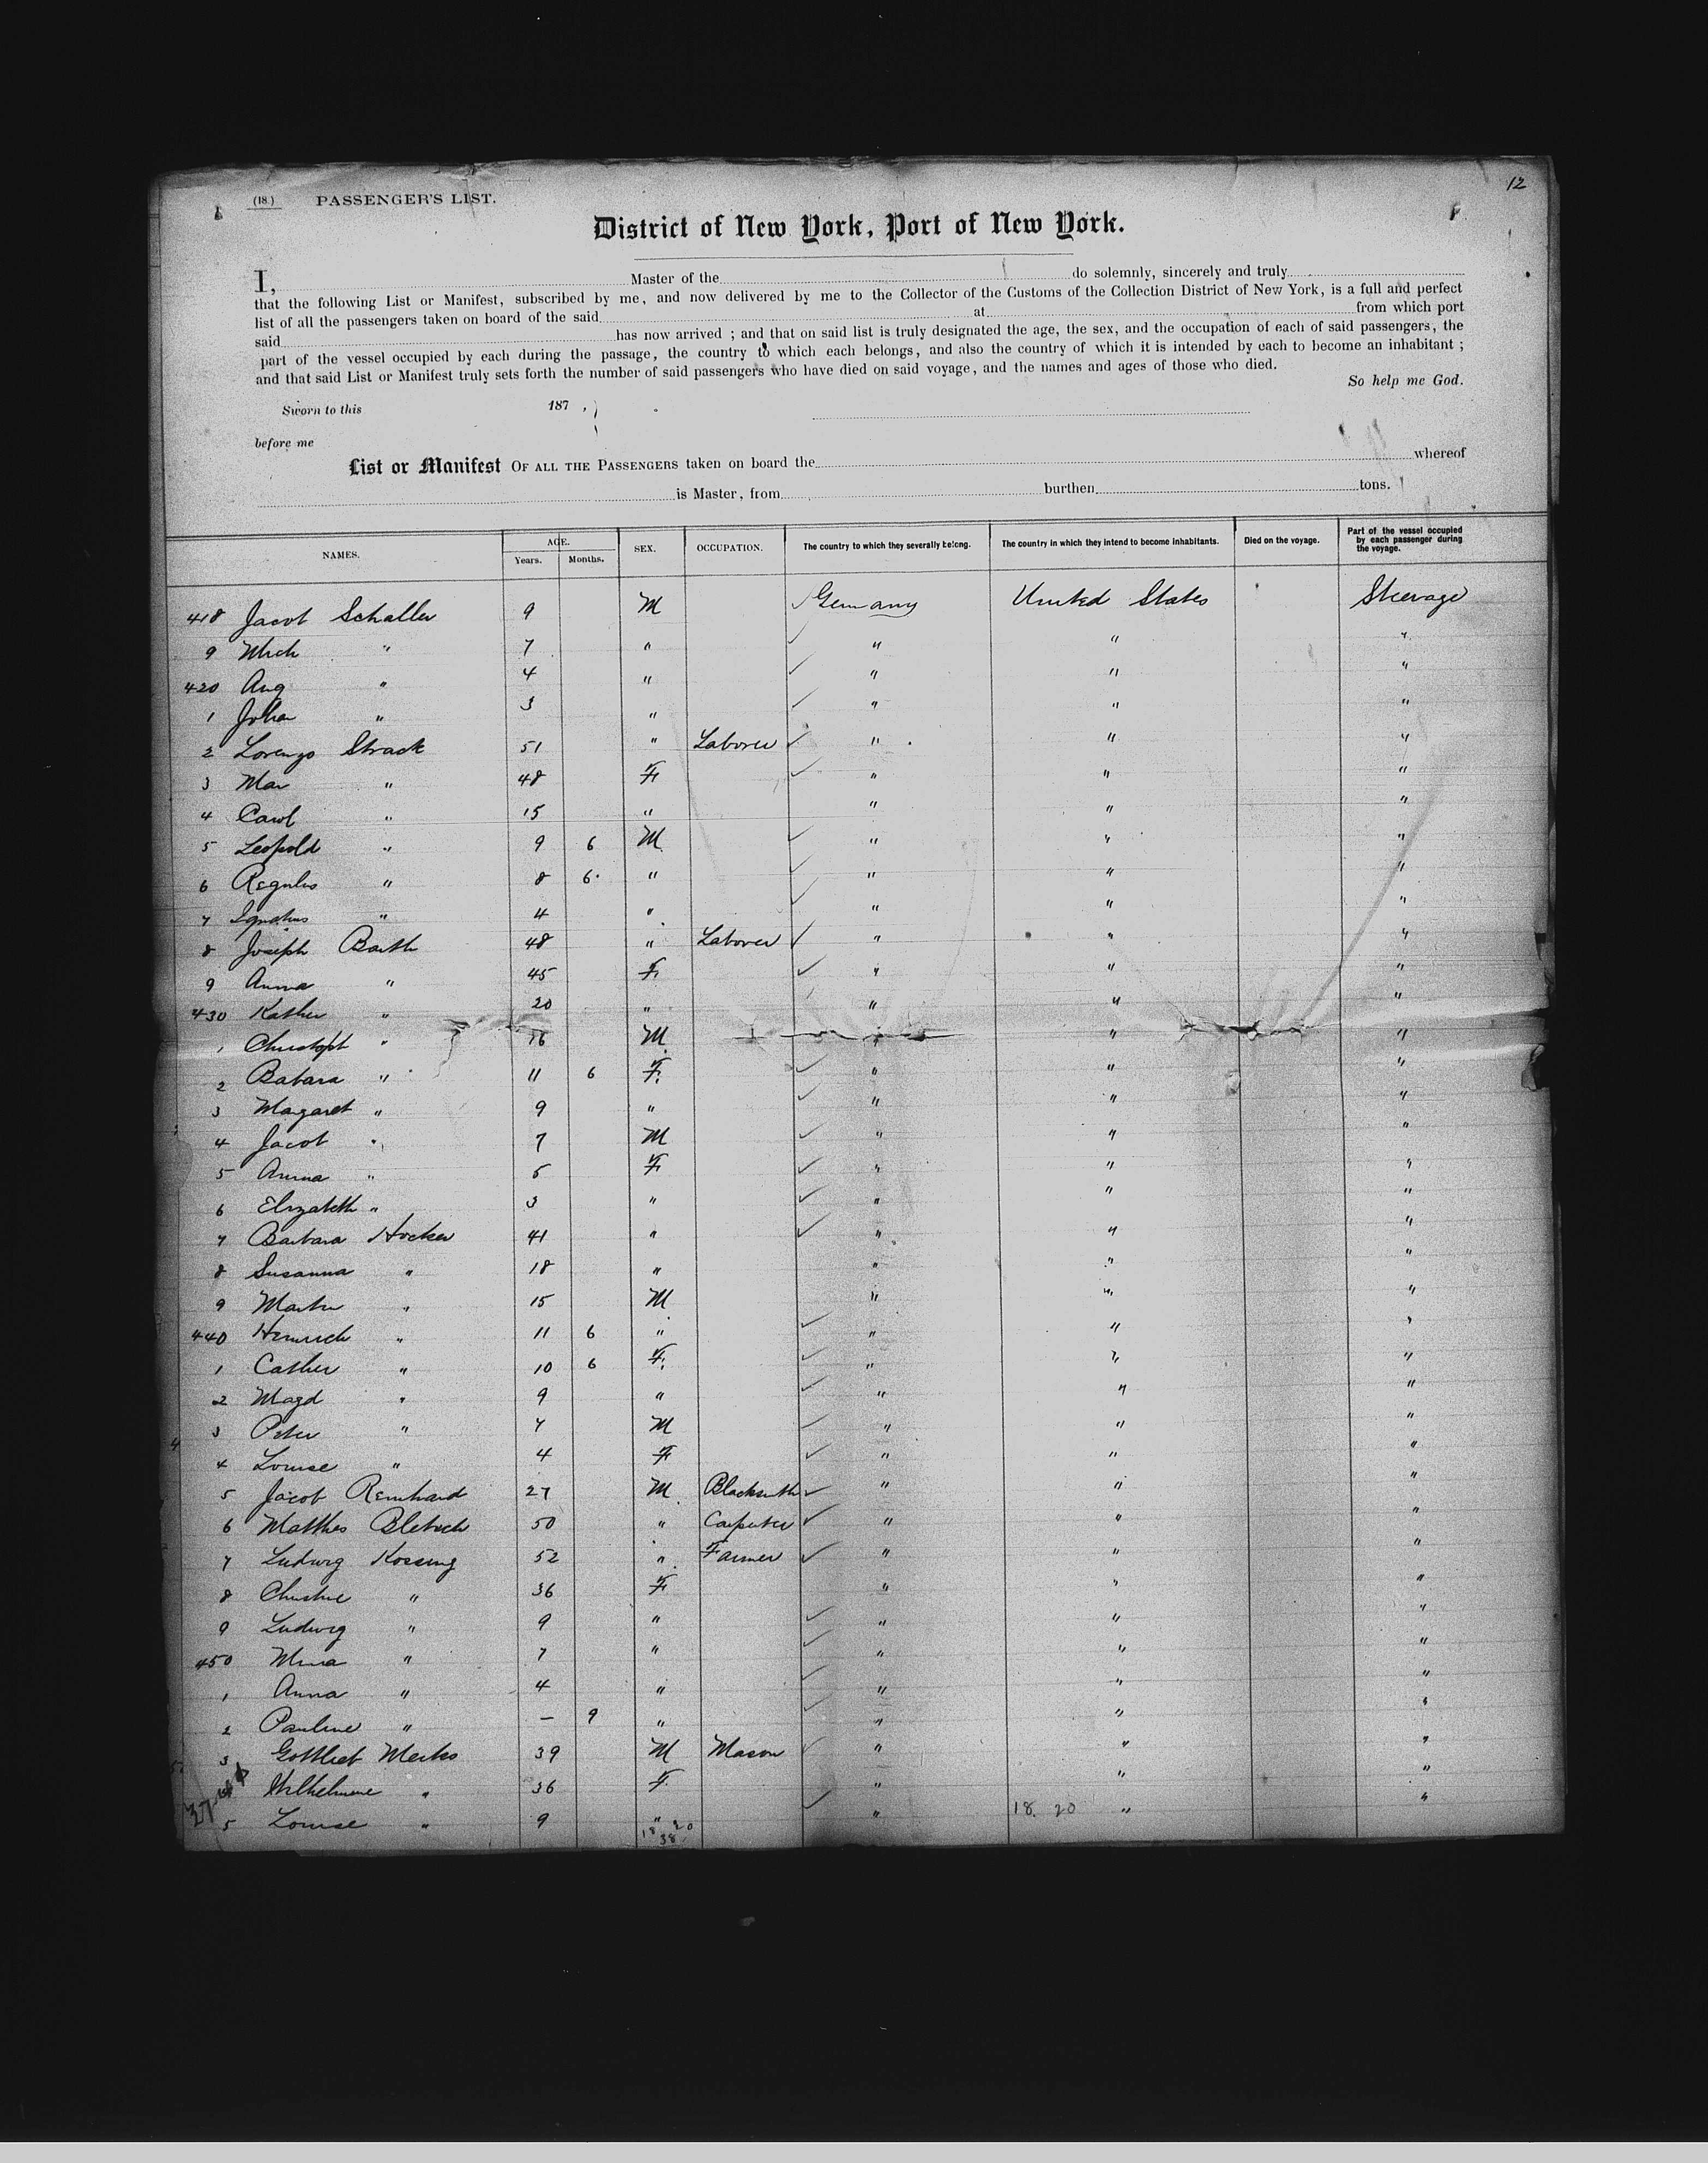 12
(18.) PASSENGER'S LIST.
District of New York, Port of New York.
I, Master of the do solemnly, sincerely and truly
that the following List or Manifest, subscribed by me, and now delivered by me to the Collector of the Customs of the Collection District of New York, is a full and perfect
list of all the passengers taken on board of the said at from which port
said has now arrived ; and that on said list is truly designated the age, the sex, and the occupation of each of said passengers, the
part of the vessel occupied by each during the passage, the country to which each belongs, and also the country of which it is intended by each to become an inhabitant ;
and that said List or Manifest truly sets forth the number of said passengers who have died on said voyage, and the names and ages of those who died.
So help me God.
Sworn to this 187 ,
before me
List or Manifest OF ALL THE PASSENGERS taken on board the whereof
is Master, from burthen tons.
NAMES. AGE. Years. Months. SEX. OCCUPATION. The country to which they severally belong. The country in which they intend to become inhabitants. Died on the voyage. Part of the vessel occupied by each passenger during the voyage.
418 Jacob Schaller 9 M Germany United States Steerage
9 Mich " 7 " " " "
420 Aug " 4 " " " "
1 Johan " 3 " " " "
2 Lorenzo Strack 51 " Laborer " " "
3 Mar " 48 F " " "
4 Carol " 15 " " " "
5 Leopold " 9 6 M " " "
6 Regulus " 8 6 " " " "
7 Ignatius " 4 " " " "
8 Joseph Barth 48 " Laborer " " "
9 Anna " 45 F " " "
430 Kather " 20 " " " "
1 Christoph " 16 M " " "
2 Babara " 11 6 F " " "
3 Margaret " 9 " " " "
4 Jacob " 7 M " " "
5 Anna " 5 F " " "
6 Elizabeth " 3 " " " "
7 Barbara Hocker 41 " " " "
8 Susanna " 18 " " " "
9 Martin " 15 M " " "
440 Heinrich " 11 6 " " " "
1 Cather " 10 6 F " " "
2 Magd " 9 " " " "
3 Peter " 7 M " " "
4 Louise " 4 F " " "
5 Jacob Reinhard 27 M Blacksmith " " "
6 Matthes 50 " Carpenter " " "
7 Ludwig Kossing 52 " Farmer " " "
8 Christine " 36 F " " "
9 Ludwig " 9 " " " "
450 Mina " 7 " " " "
1 Anna " 4 " " " "
2 Pauline " — 9 " " " "
3 Gottlieb Merks 39 M Mason " " "
4 Wilhelmine " 36 F " " "
5 Louise " 9 " " 18. 20 " "
18 20
38